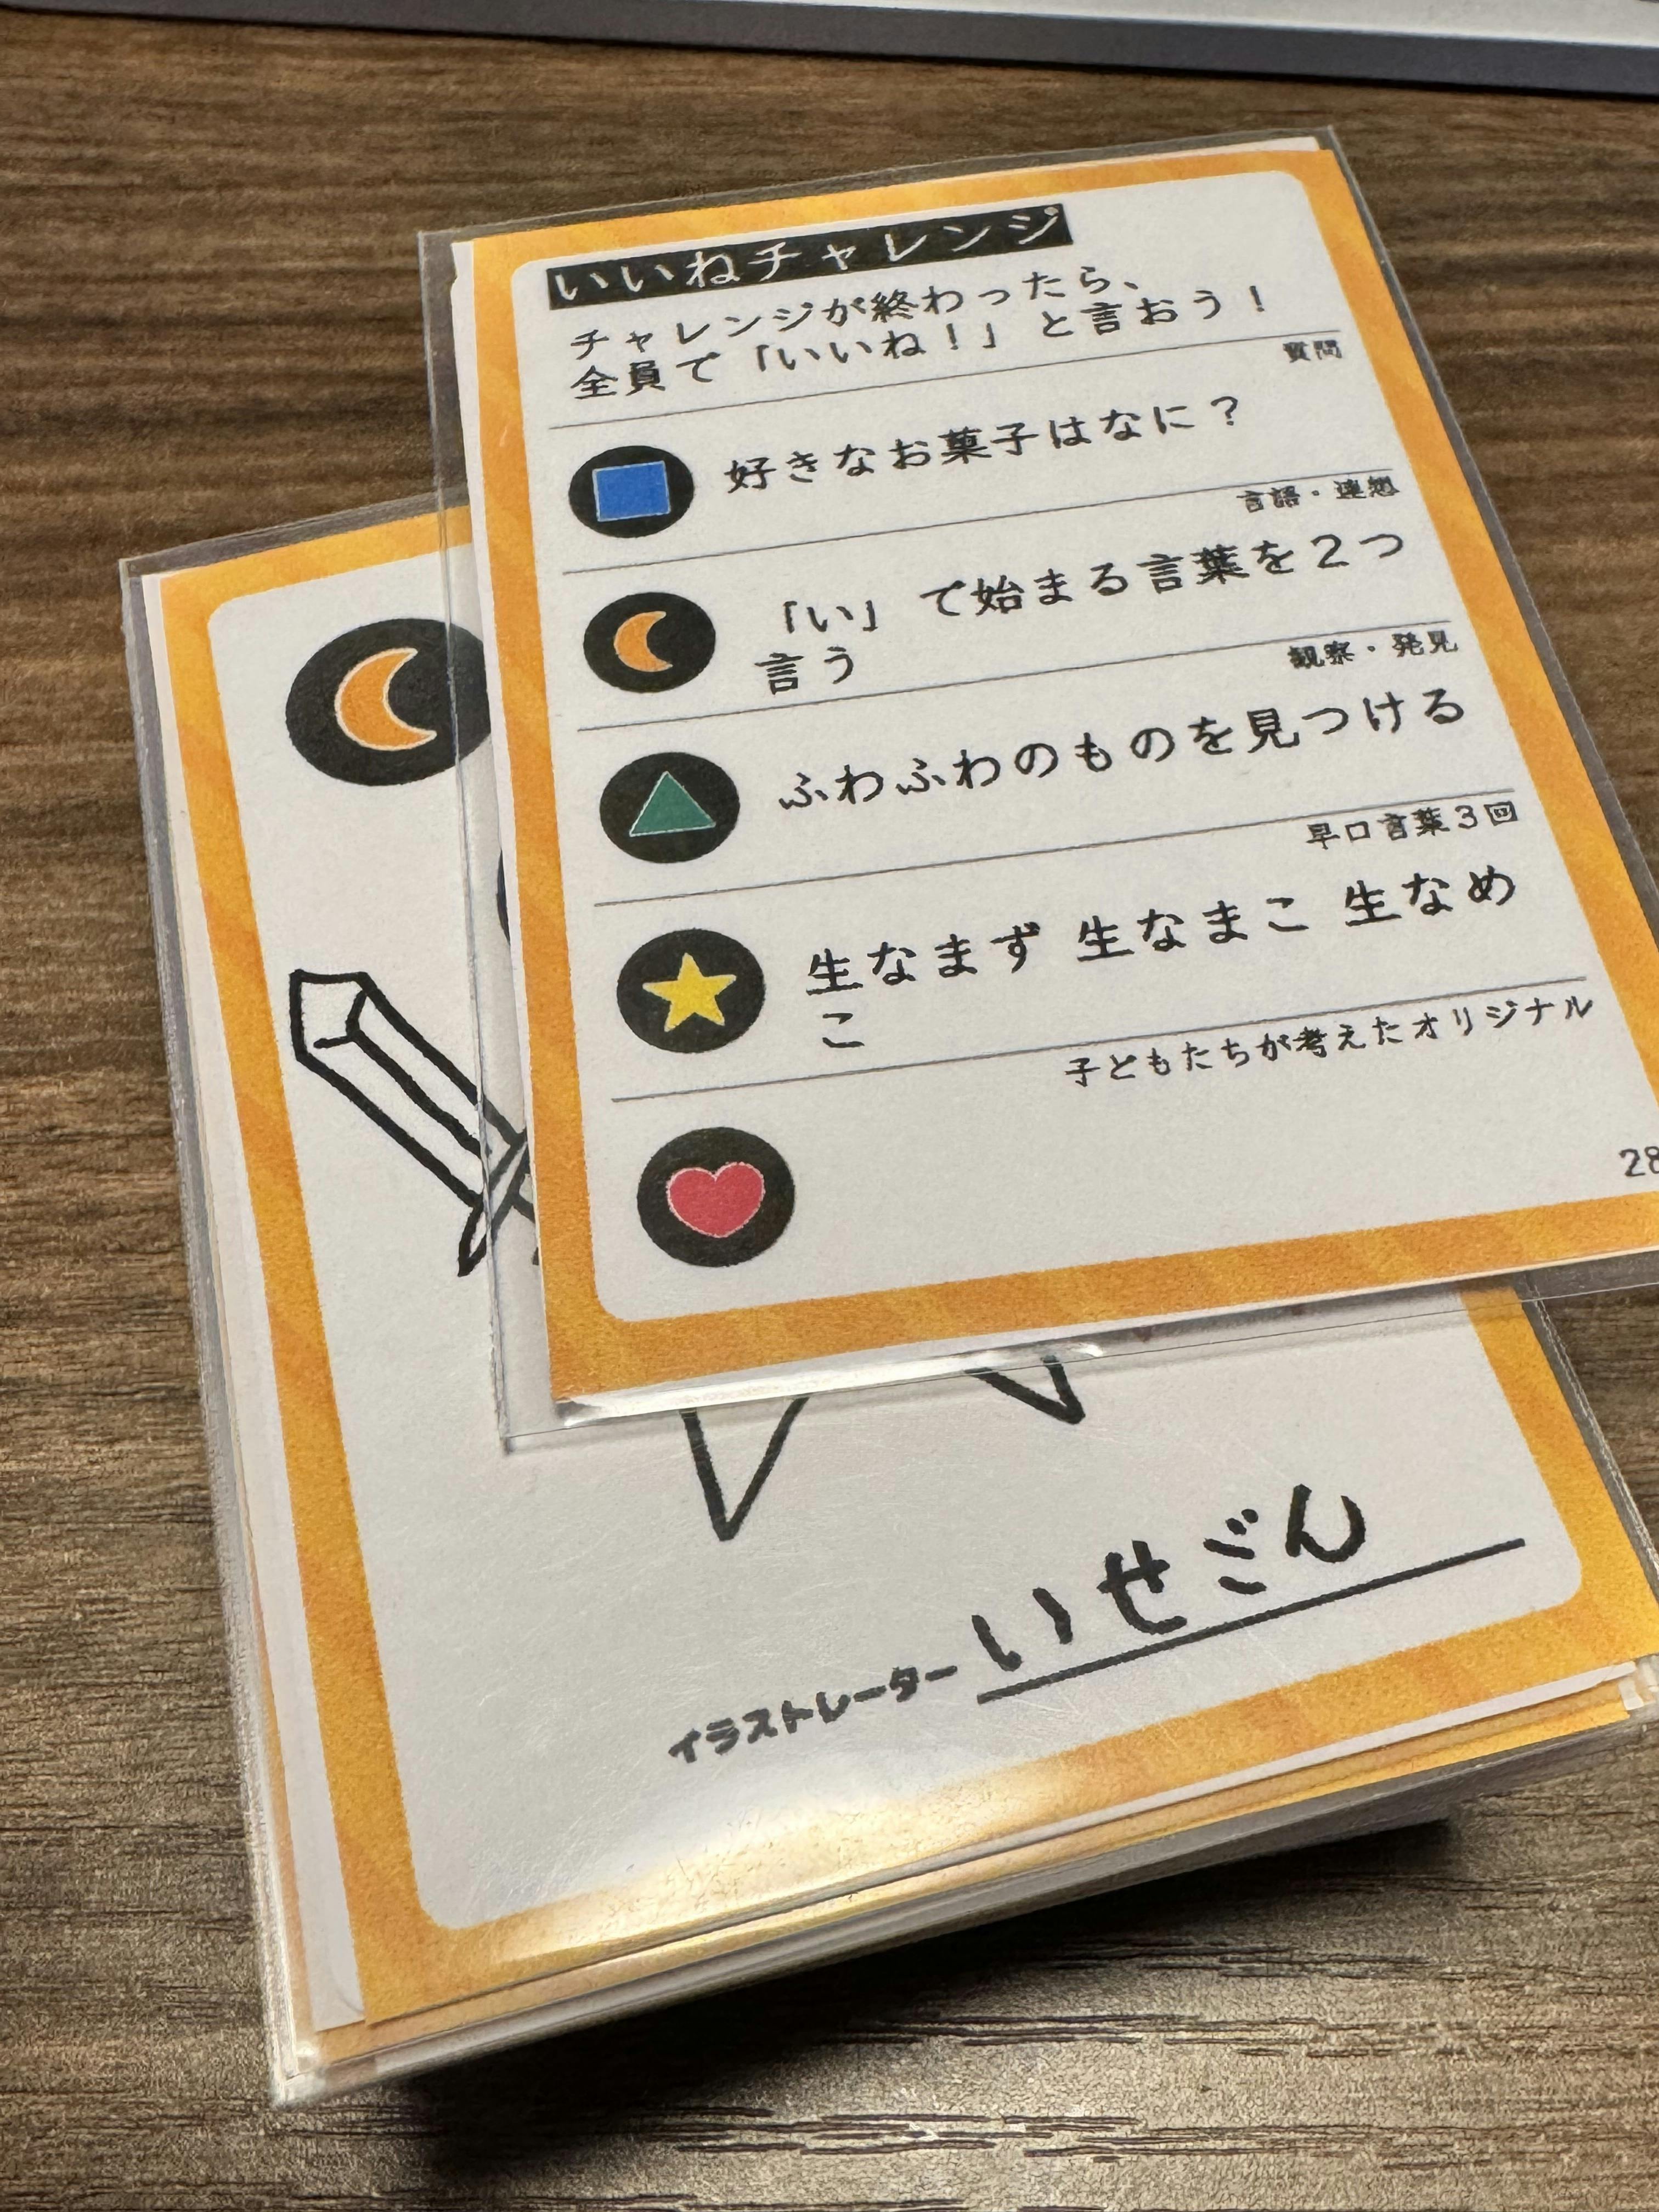 いいねチャレンジ
チャレンジが終わったら、
全員で「いいね！」と言おう！
質問
好きなお菓子はなに？
言語・連想
「い」で始まる言葉を２つ
言う
観察・発見
ふわふわのものを見つける
早口言葉３回
生なまず 生なまこ 生なめ
こ
子どもたちが考えたオリジナル
28
イラストレーター いせごん